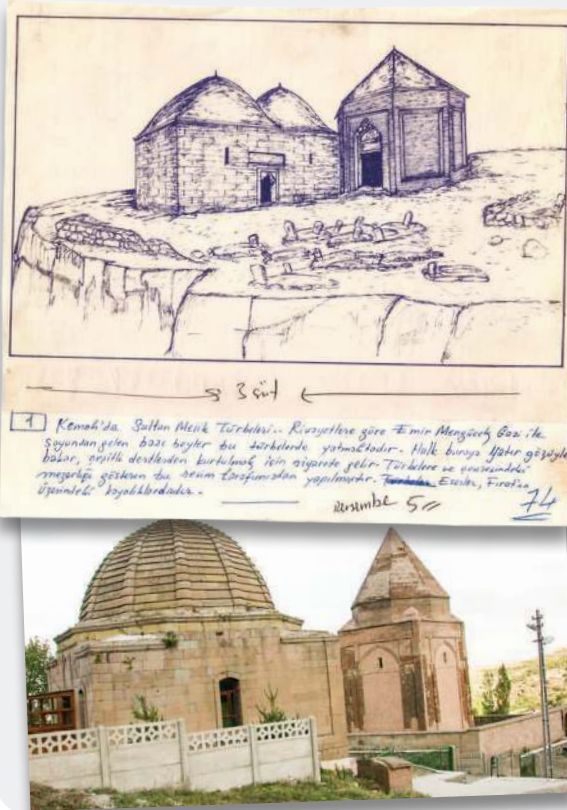 3 süt
1 Kemah'da Sultan Melik Türbeleri.. Rivayetlere göre Emir Mengücek Gazi ile
soyundan gelen bazı beyler bu türbelerde yatmaktadır. Halk buraya Yatır gözüyle
bakar, çeşitli dertlerden kurtulmak için ziyarete gelir. Türbelere ve çevresindeki
mezarlığı gösteren bu resim tarafımızdan yapılmıştır. Eserler, Fırat'ın
üzerindeki kayalıklardadır.
Persembe 5
74